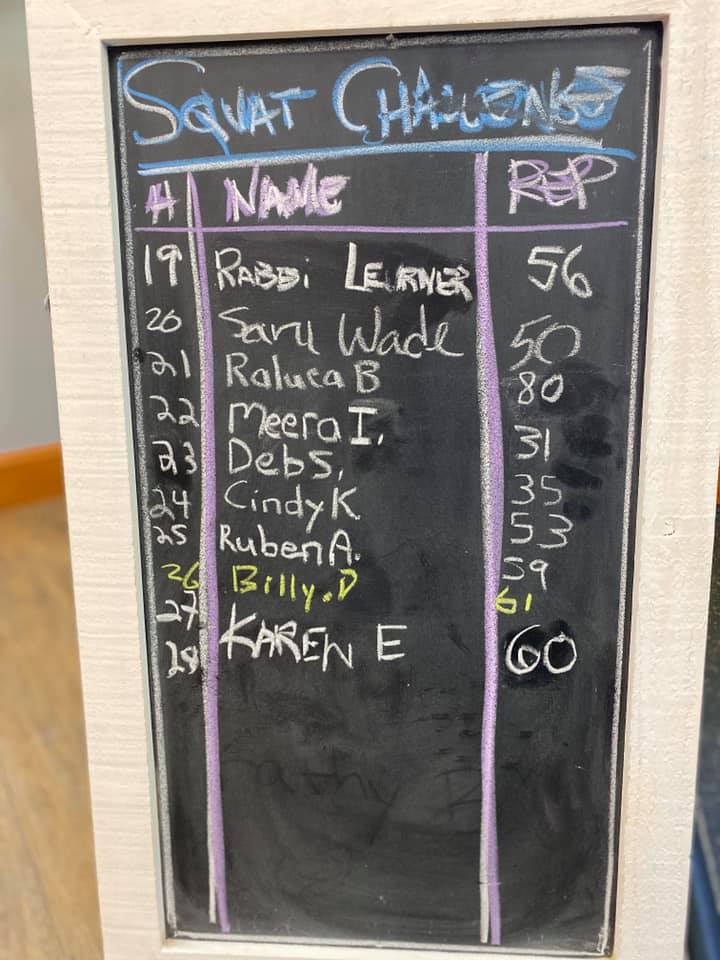 SQUAT CHALLENGE
# NAME REP
19 RABBi LERNER 56
20 Saru Wade 50
21 Raluca B 80
22 Meera I. 31
23 Deb S. 35
24 Cindy K 53
25 Ruben A. 59
26 Billy.D 61
27
28 KAREN E 60